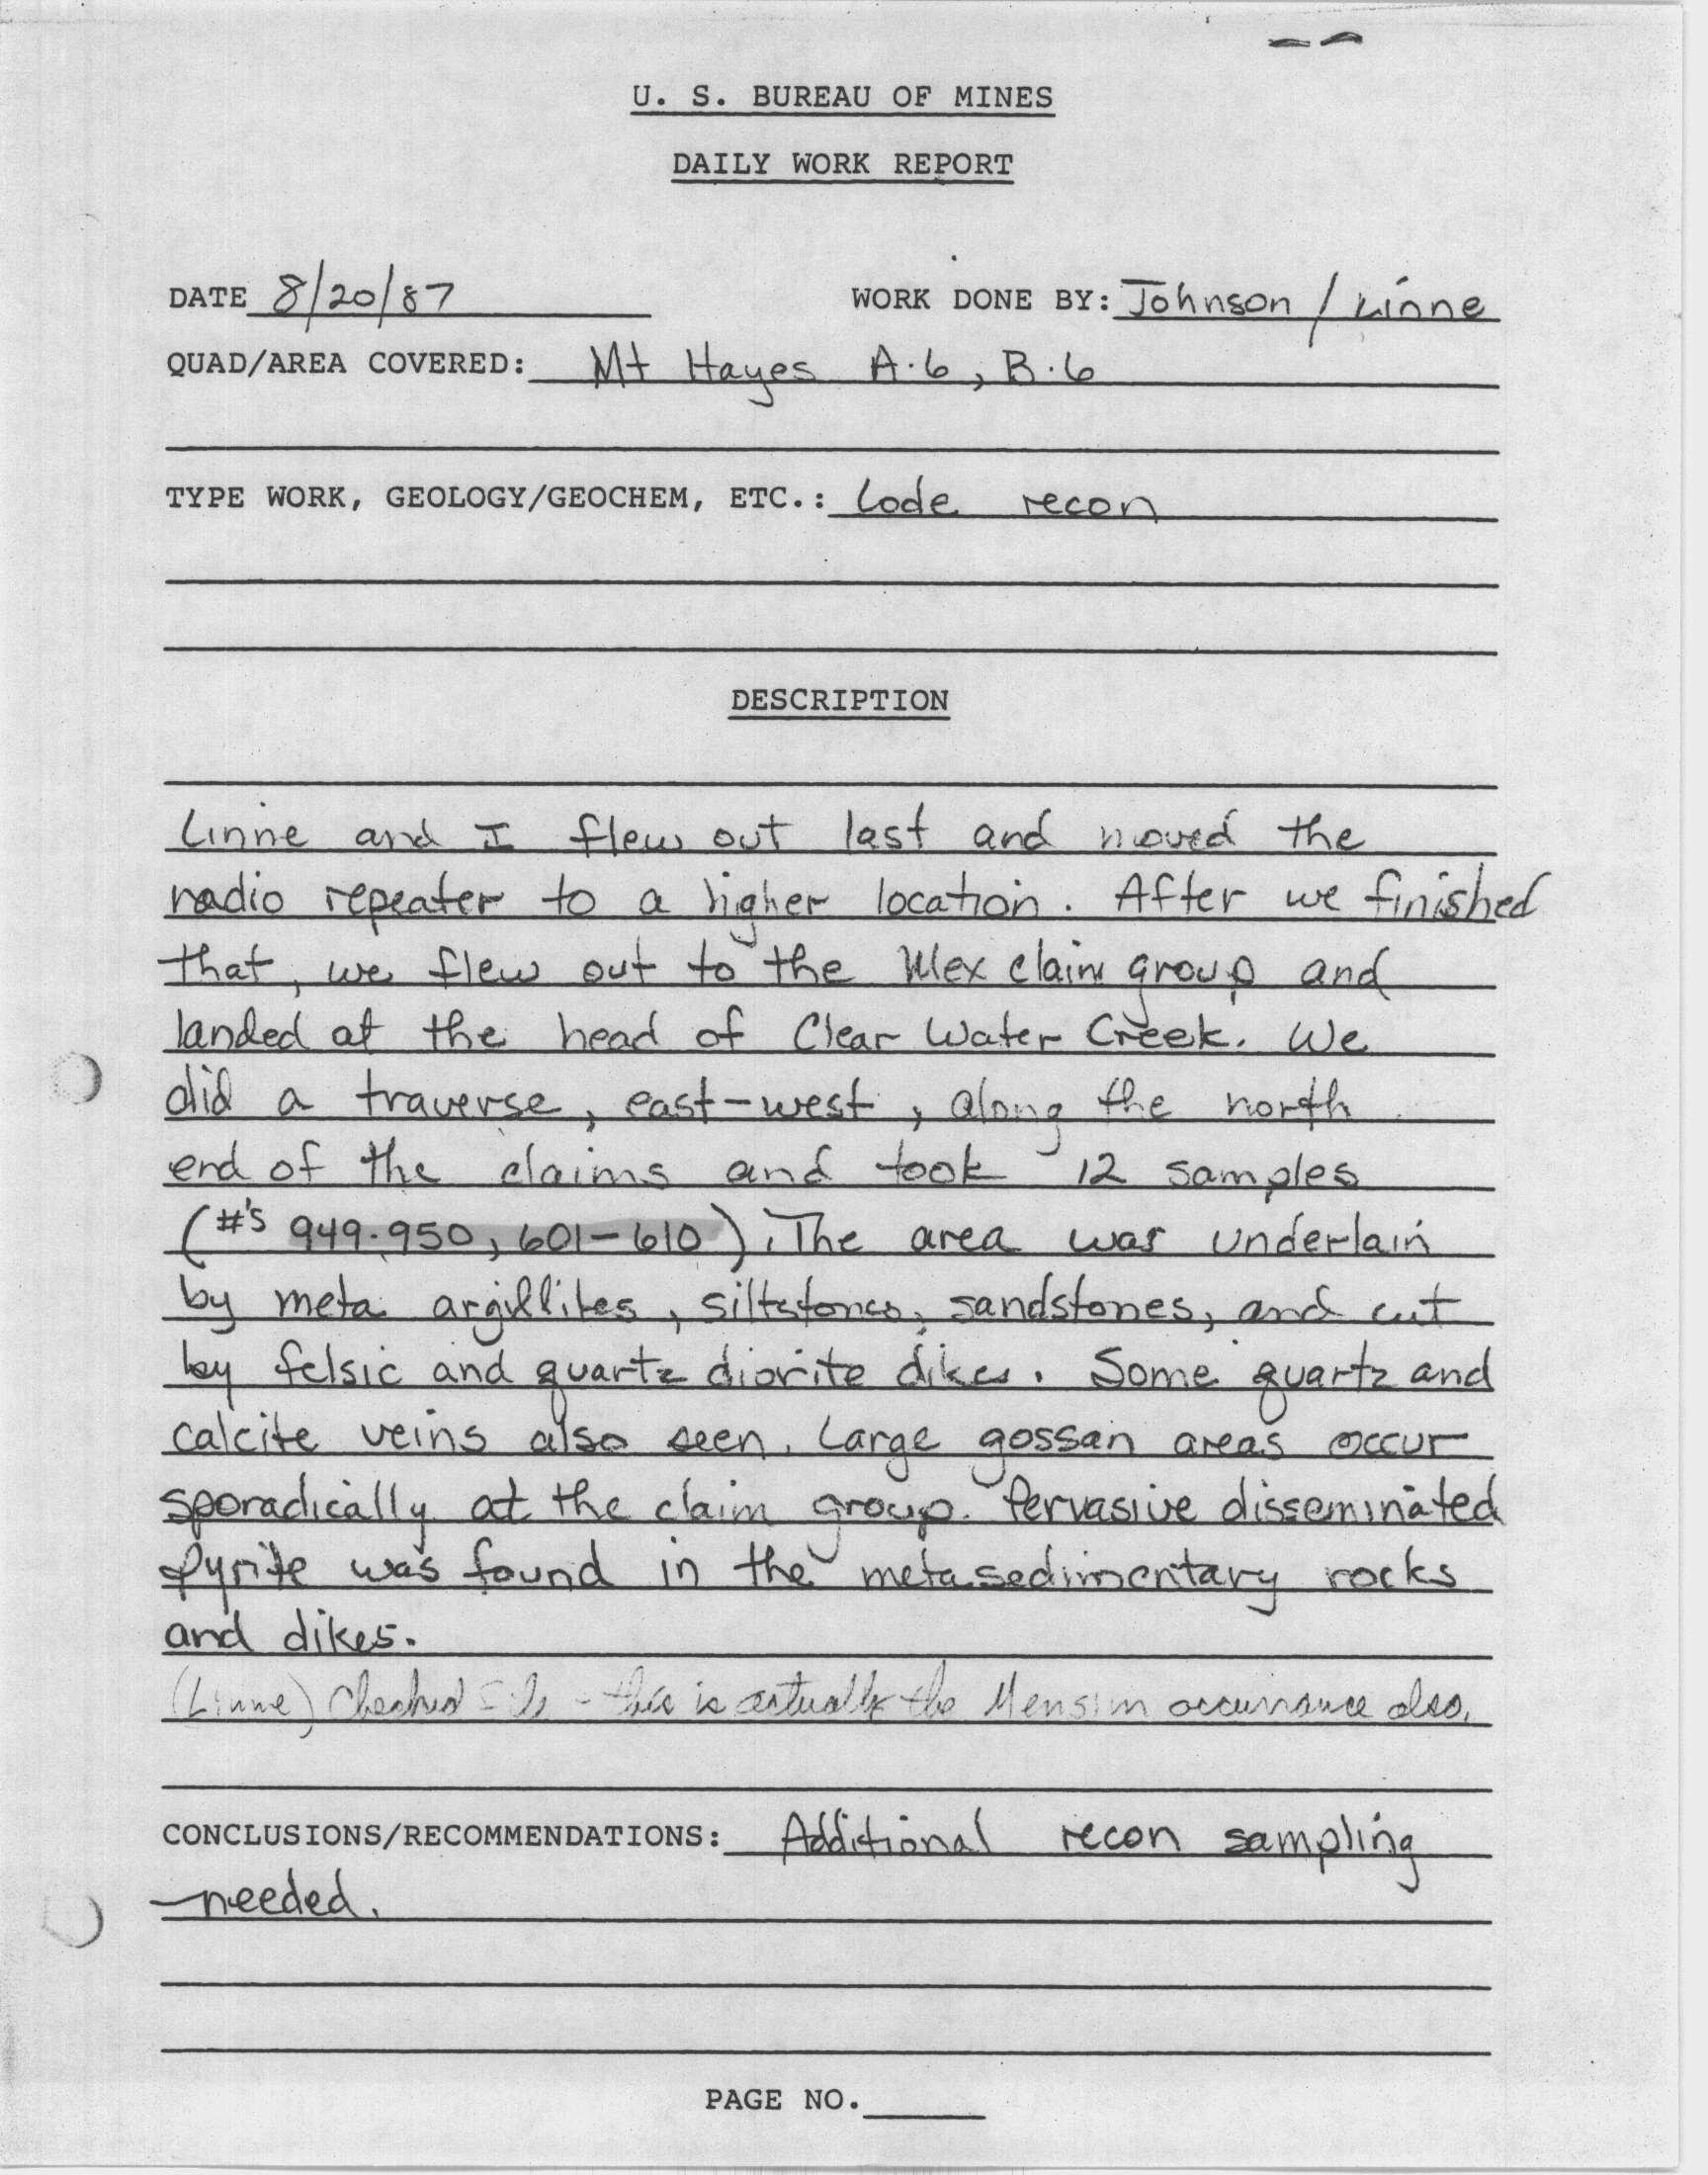 U. S. BUREAU OF MINES
DAILY WORK REPORT
DATE 8/20/87 WORK DONE BY: Johnson / Linne
QUAD/AREA COVERED: Mt Hayes A-6, B-6
TYPE WORK, GEOLOGY/GEOCHEM, ETC.: Lode recon
DESCRIPTION
Linne and I flew out last and moved the
radio repeater to a higher location. After we finished
that, we flew out to the claim group and
landed at the head of Clear Water Creek. We
did a traverse, east-west, along the north
end of the claims and took 12 samples
(#'s 949-950, 601-610). The area was underlain
by meta argillites, siltstones, sandstones, and cut
by felsic and quartz diorite dikes. Some quartz and
calcite veins also seen. Large gossan areas occur
sporadically at the claim group. Pervasive disseminated
pyrite was found in the metasedimentary rocks
and dikes.
(Linne) Checked - this is actually the Mensim occurrance also.
CONCLUSIONS/RECOMMENDATIONS: Additional recon sampling
needed.
PAGE NO.